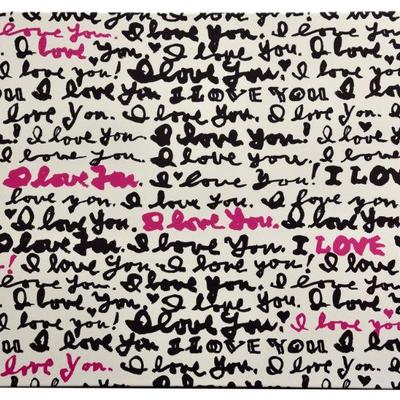 I love You. I love You. I love You.
I love You. I love You. I love You.
I love you! I love You! I love you
I love You I LOVE YOU I love
love You. I love You. I love You.
I love You. I love You. I love you.
I love You. I love You.
I love You. I love you! I LOVE
love you. I love You. I love you.
I love You. I love You. I love You
I love You. I love You. I LOVE
I love You. I love you! I love
I love You. I love You. I love You.
I love You. I love You. I love You.
I love you! I love You! I love you
I love You I LOVE YOU I love
love You. I love You. I love You.